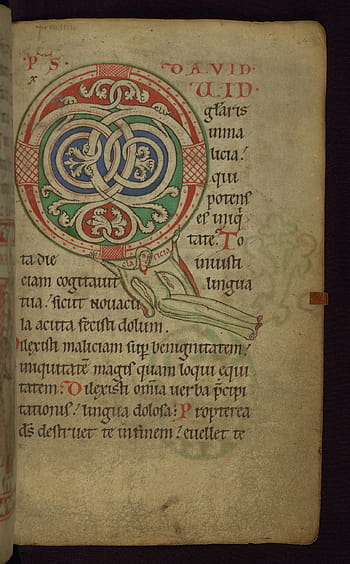 PS. DAVID.
Q UID
glaris
inma
licia?
qui
potens
es iniq
tate. To
ta die iniusti
ciam cogitauit lingua
tua? sicut nouacu
la acuta fecisti dolum.
Dilexisti maliciam sup benignitatem?
iniquitatē magis quam loqui equi
tatem. Dilexisti omīa uerba p̄cipi
tationis? lingua dolosa? Propterea
ds̄ destruet te in finem? euellet te